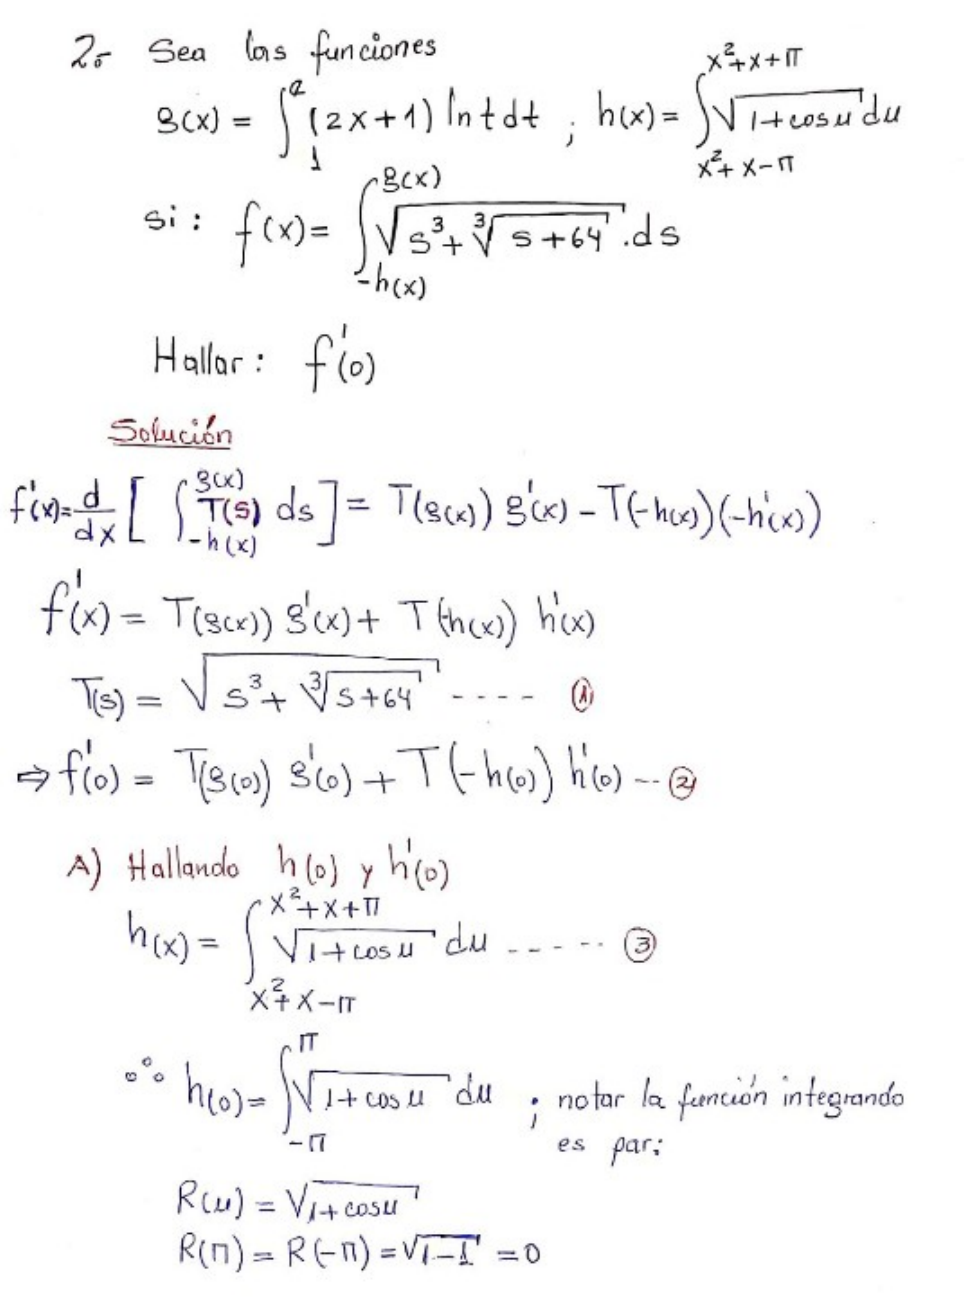 2.- Sea las funciones
g(x) = ∫₁^e (2x+1) ln t dt ; h(x) = ∫_{x²+x-π}^{x²+x+π} √(1+cos u) du
si : f(x) = ∫_{-h(x)}^{g(x)} √(s³ + ∛(s+64)) . ds
Hallar : f'(0)
Solución
f'(x) = d/dx [ ∫_{-h(x)}^{g(x)} T(s) ds ] = T(g(x)) g'(x) - T(-h(x))(-h'(x))
f'(x) = T(g(x)) g'(x) + T(-h(x)) h'(x)
T(s) = √(s³ + ∛(s+64)) ---- ①
⇒ f'(0) = T(g(0)) g'(0) + T(-h(0)) h'(0) -- ②
A) Hallando h(0) y h'(0)
h(x) = ∫_{x²+x-π}^{x²+x+π} √(1+cos u) du ----- ③
∴ h(0) = ∫_{-π}^{π} √(1+cos u) du ; notar la función integrando
es par:
R(u) = √(1+cos u)
R(π) = R(-π) = √(1-1) = 0